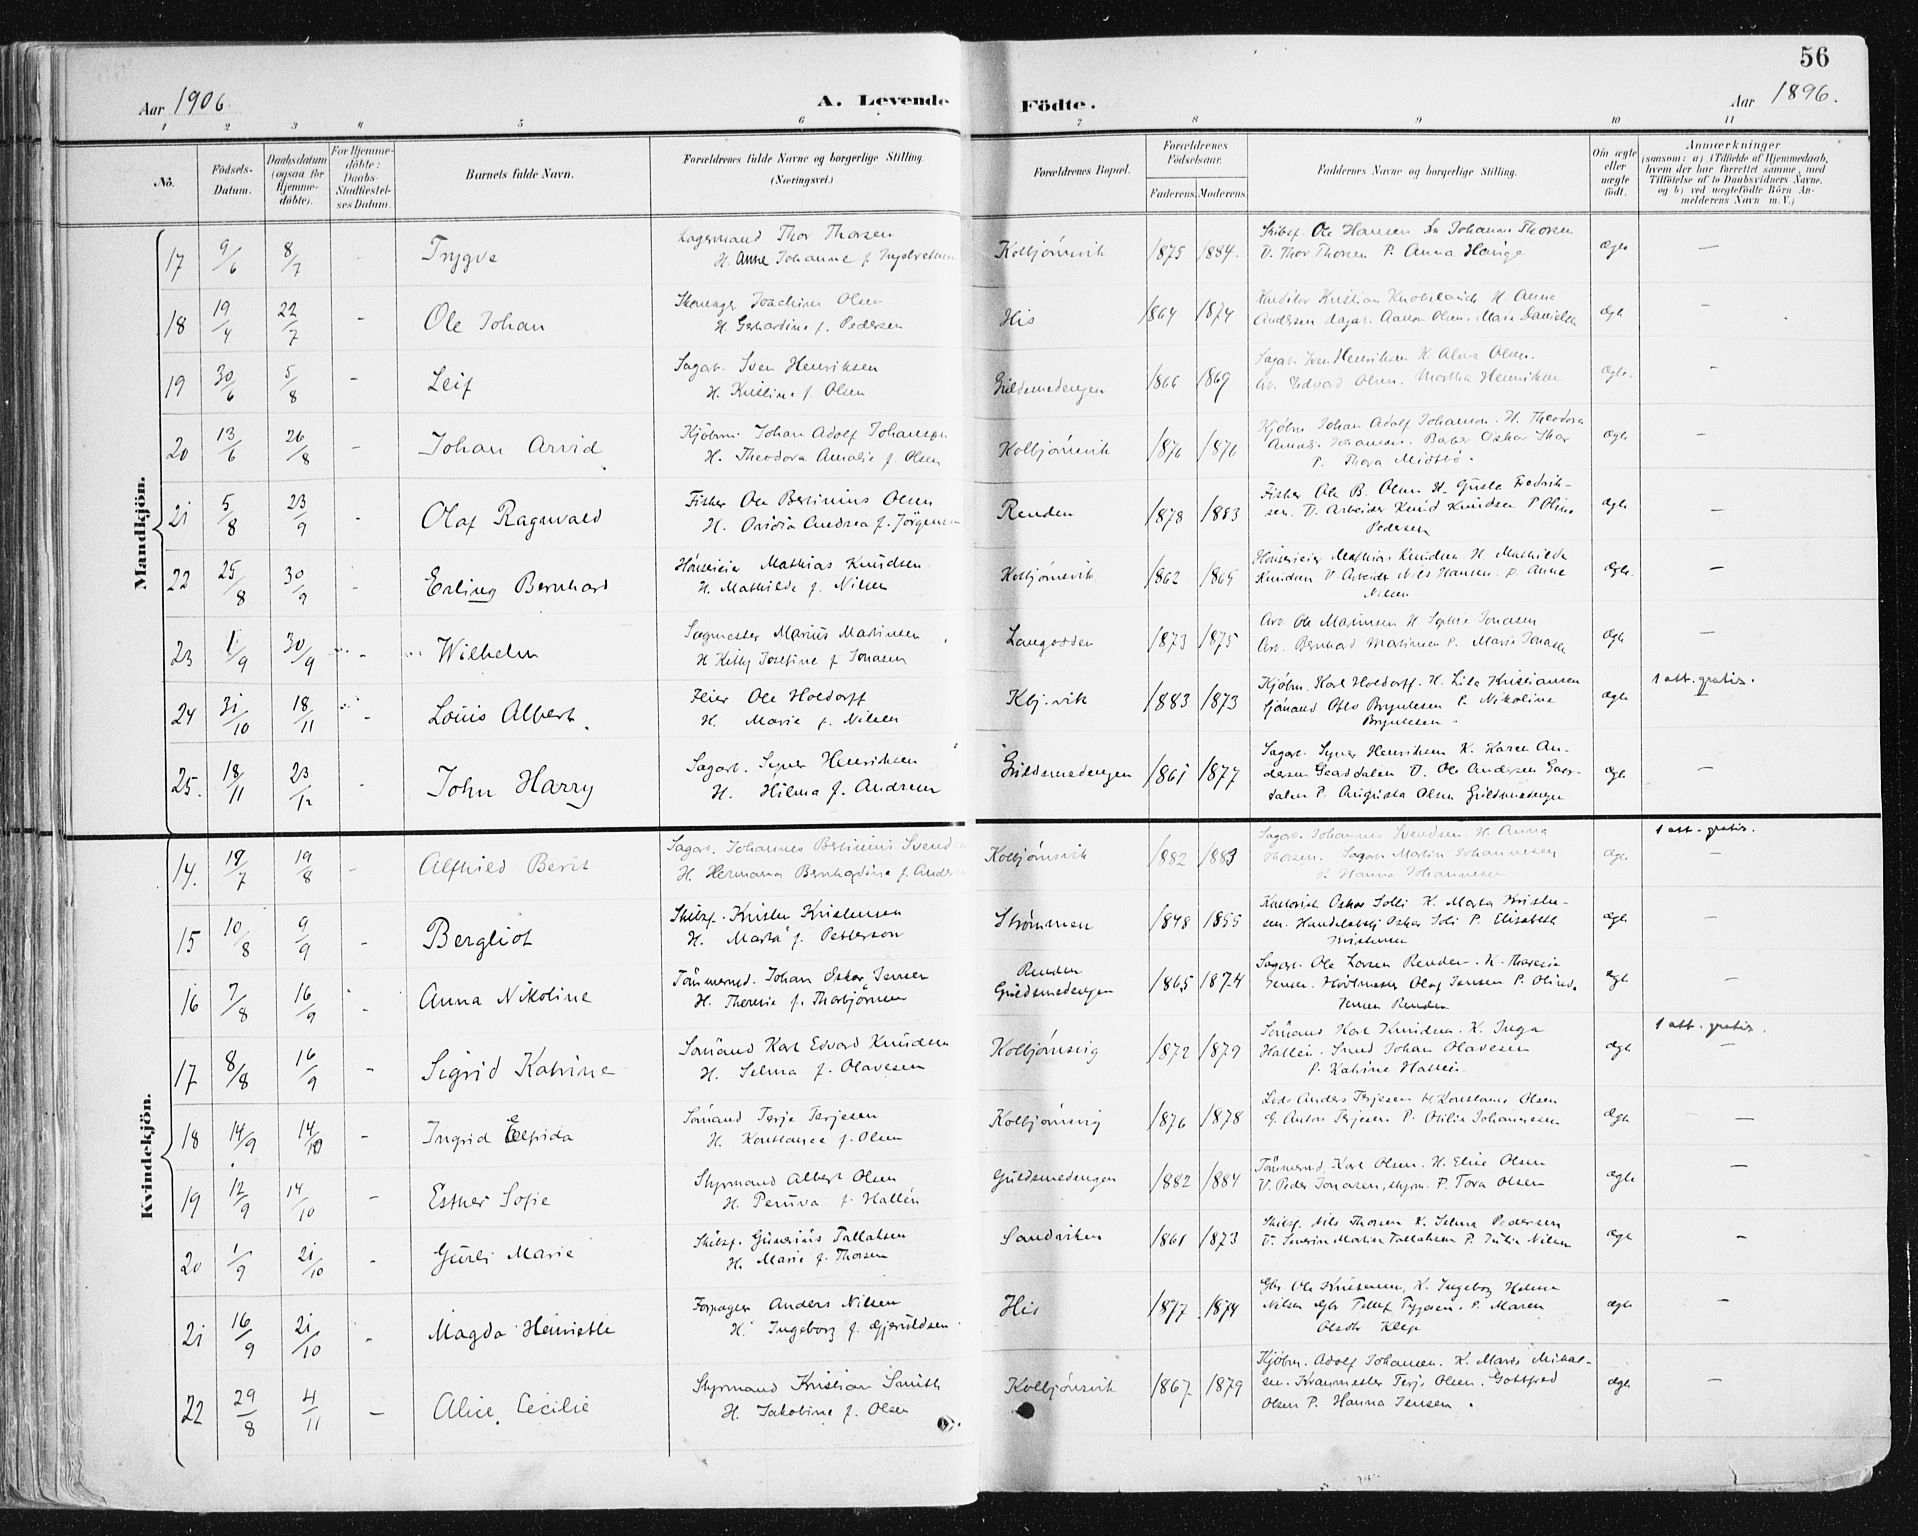 56
Aar 1906.
A. Levende Födte.
Aar 1896.
1 2 3 4 5 6 7 8 9 10 11
No.
Födsels-Datum.
Daabsdatum (ogsaa for Hjemme-döbte).
For Hjemme-döbte: Daabs-Stadfæstel-ses Datum.
Barnets fulde Navn.
Forældrenes fulde Navne og borgerlige Stilling. (Næringsvei.)
Forældrenes Bopæl.
Forældrenes Födselsaar.
Faderens. Moderens.
Faddernes Navne og borgerlige Stilling.
Om ægte eller uægte födt.
Anmærkninger
(saasom: a) i Tilfælde af Hjemmedaab, hvem der har forrettet samme, med Tilföielse af to Daabsvidners Navne, og b) ved uægtefödte Börn An-melderens Navn m. V.)
Mandkjön.
17 9/6 8/7 - Trygve
Thor Thorsen
H. Anne Johanne f.
Kolbjörnsvik 1875 1884. Skibsf. Ole Hansen
Thor Thorsen P. Anna ægte —
18 19/4 22/7 - Ole Johan
Joachim Olsen
H. Gerhardine f. Pedersen
His 1864 1874 Kristian H. Anna
Andersen Aanon Olsen. Maria Danielsen ægte -
19 30/6 5/8 - Leif
Sagarb. Sven Henriksen
H. Kristine f. Olsen
Guldsmedengen 1866 1869 Sagarb. Sven Henriksen K. Alma Olsen.
Edvard Olsen. Martha Henriksen ægte. -
20 13/6 26/8 - Johan Arvid
Kjöbm. Johan Adolf Johansen
H. Theodora Amalie f. Olsen
Kolbjörnsvik 1876 1876 Kjöbm. Johan Adolf Johansen. H. Theodora
Amalie Johansen. Oskar Thor
P. Thora ægte -
21 5/8 23/9 - Olaf Ragnvald
Fisker Ole Bertinius Olsen
H. Ovidia Andrea f. Jörgensen
Renden 1878 1883 Fisker Ole B. Olsen H. Gusta Fredrik-
sen. V. Arbeider Knud Knudsen P Oline
Pedersen ægte —
22 25/8 30/9 - Erling Bernhard
Mathias Knudsen
H. Mathilde f. Nilsen
Kolbjörnsvik 1862 1865 Mathias Knudsen H Mathilde
Knudsen V Arbeider Nils Hansen. P. Anne
Nilsen ægte. —
23 1/9 30/9 - Wilhelm
Sagmester Marius Martinsen
H Kitty Josefine f Jonasen
Langodden 1873 1875 Arb. Ole H Sophie Jonasen
Arb. Bernhard Martinsen P. Marie Jonasen ægte —
24 31/10 18/11 - Louis Albert.
Feier Ole Holdorff
H. Marie f. Nilsen
Kbj.vik 1883 1873 Kjöbm. Karl Holdorff. H. Lila Kristiansen
Sjömand Otto Brynildsen P. Nikoline
Brynildsen. ægte 1 att. gratis.
25. 18/11 23/12 - John Harry
Sagarb. Syver Henriksen
H. Hilma f. Andersen
Guldsmedengen 1861 1877 Sagarb. Syver Henriksen K. Karen An-
dersen V. Ole Andersen
P. Augusta Olsen Guldsmedengen ægte —
Kvindekjön.
14. 18/7 19/8 - Alfhild Berit
Sagarb. Johannes Bertinius Svendsen
H. Hermana Bernhardine f. Andersen
Kolbjörnsvik 1882 1883 Sagarb. Johannes Svendsen. H. Anna
Thorsen. Sagarb. Martin Johannesen
P. Hanna Johannesen ægte 1 att. gratis. —
15 10/8 9/9 - Bergliot
Skibsf. Krister Kristensen
H. Marta f. Petterson
Strömmen 1848 1855 Oskar Solli K. Marta Kristen-
sen. Oskar Soli P. Elisabeth
Kristensen ægte —
16 7/8 16/9 - Anna Nikoline
Tömmermd. Johan Oskar Jensen
H. Theresia f. Thorbjörnsen
Renden
Guldsmedengen 1865 1874 Sagarb. Ole Larsen Renden. K. Theresia
Jensen. Olaf Jensen P. Olinda
Jensen Renden ægte -
17 8/8 16/9 - Sigrid Katrine
Sömand Karl Edvard Knudsen
H. Selma f. Olavesen
Kolbjörnsvig 1872 1879 Sömand Karl Knudsen. K. Inga
Hallén. Smed Johan Olavesen
P. Katrine Hallén. ægte 1 att. gratis. —
18 14/9 14/10 - Ingrid Elfrida
Sömand Terje Terjesen
H. Konstance f. Olsen
Kolbjörnsvig 1876 1878 Lods Anders Terjesen H. Konstance Olsen
G. Anton Terjesen P. Otilie Johannesen ægte —
19 12/9 14/10 - Esther Sofie
Styrmand Albert Olsen
H. Petrina f. Hallén
Guldsmedengen 1882 1884 Tömmermd. Karl Olsen. H. Elise Olsen
V. Peder Jonasen, styrm. P. Tora Olsen ægte —
20 1/9 21/10 - Gurli Marie
Skibsf. Gunerius Tallaksen
H. Marie f. Thorsen
Sandviken 1861 1873 Skibsf. Nils Thorsen K. Selma Pedersen
V. Severin Martin Tallaksen P. Julie Nilsen ægte -
21 16/9 21/10 - Magda Henriette
Forpagter Anders Nilsen
H. Ingeborg f. Gjeruldsen.
His 1877 1874 Gbr. Ole Kristensen, K. Ingeborg Helene
Nilsen Gbr. Tellef P. Maren
Olsdtr. Klep ægte -
22 29/8 4/11 — Alice Cecilie
Styrmand Kristian Smith
H. Jakobine f. Olsen
Kolbjörnsvik 1867 1879 Kjöbm. Adolf Johansen. K. Marie Mikal-
sen. Terje Olsen. Gottfred
Olsen P. Hanna Jensen. ægte —